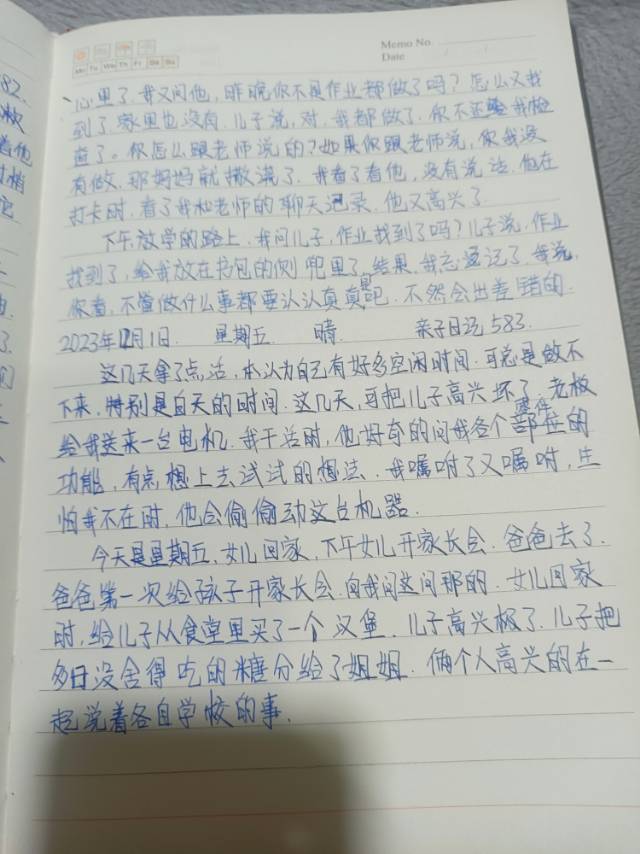 Memo No.
Date
Mo Tu We Th Fr Sa Su
82.
心里了.我又问他,昨晚你不是作业都做了吗?怎么又找
到了.家里也没有.儿子说,对,我都做了.你不还给我检
查了。你怎么跟老师说的?如果你跟老师说,你我没
有做.那妈妈就撒谎了.我看了看他,没有说话.他在
打卡时,看了我和老师的聊天记录.他又高兴了.
下午放学的路上.我问儿子,作业找到了吗?儿子说.作业
找到了,给我放在书包的侧兜里了.结果.我忘记了.我说,
你看,不管做什么事都要认认真真是吧.不然会出差错的.
2023年12月1日. 星期五 晴. 亲子日记583.
这几天拿了点活,本认为自己有好多空闲时间.可总是做不
下来,特别是白天的时间.这几天,可把儿子高兴坏了.老板
给我送来一台电机.我干活时,他好奇的问我各个零件部位的
功能,有点想上去试试的想法.我嘱咐了又嘱咐,生
怕我不在时,他会偷偷动这台机器.
今天是星期五,女儿回家,下午女儿开家长会.爸爸去了.
爸爸第一次给孩子开家长会.向我问这问那的.女儿回家
时,给儿子从食堂里买了一个汉堡.儿子高兴极了.儿子把
多日没舍得吃的糖分给了姐姐.俩个人高兴的在一
起说着各自学校的事.